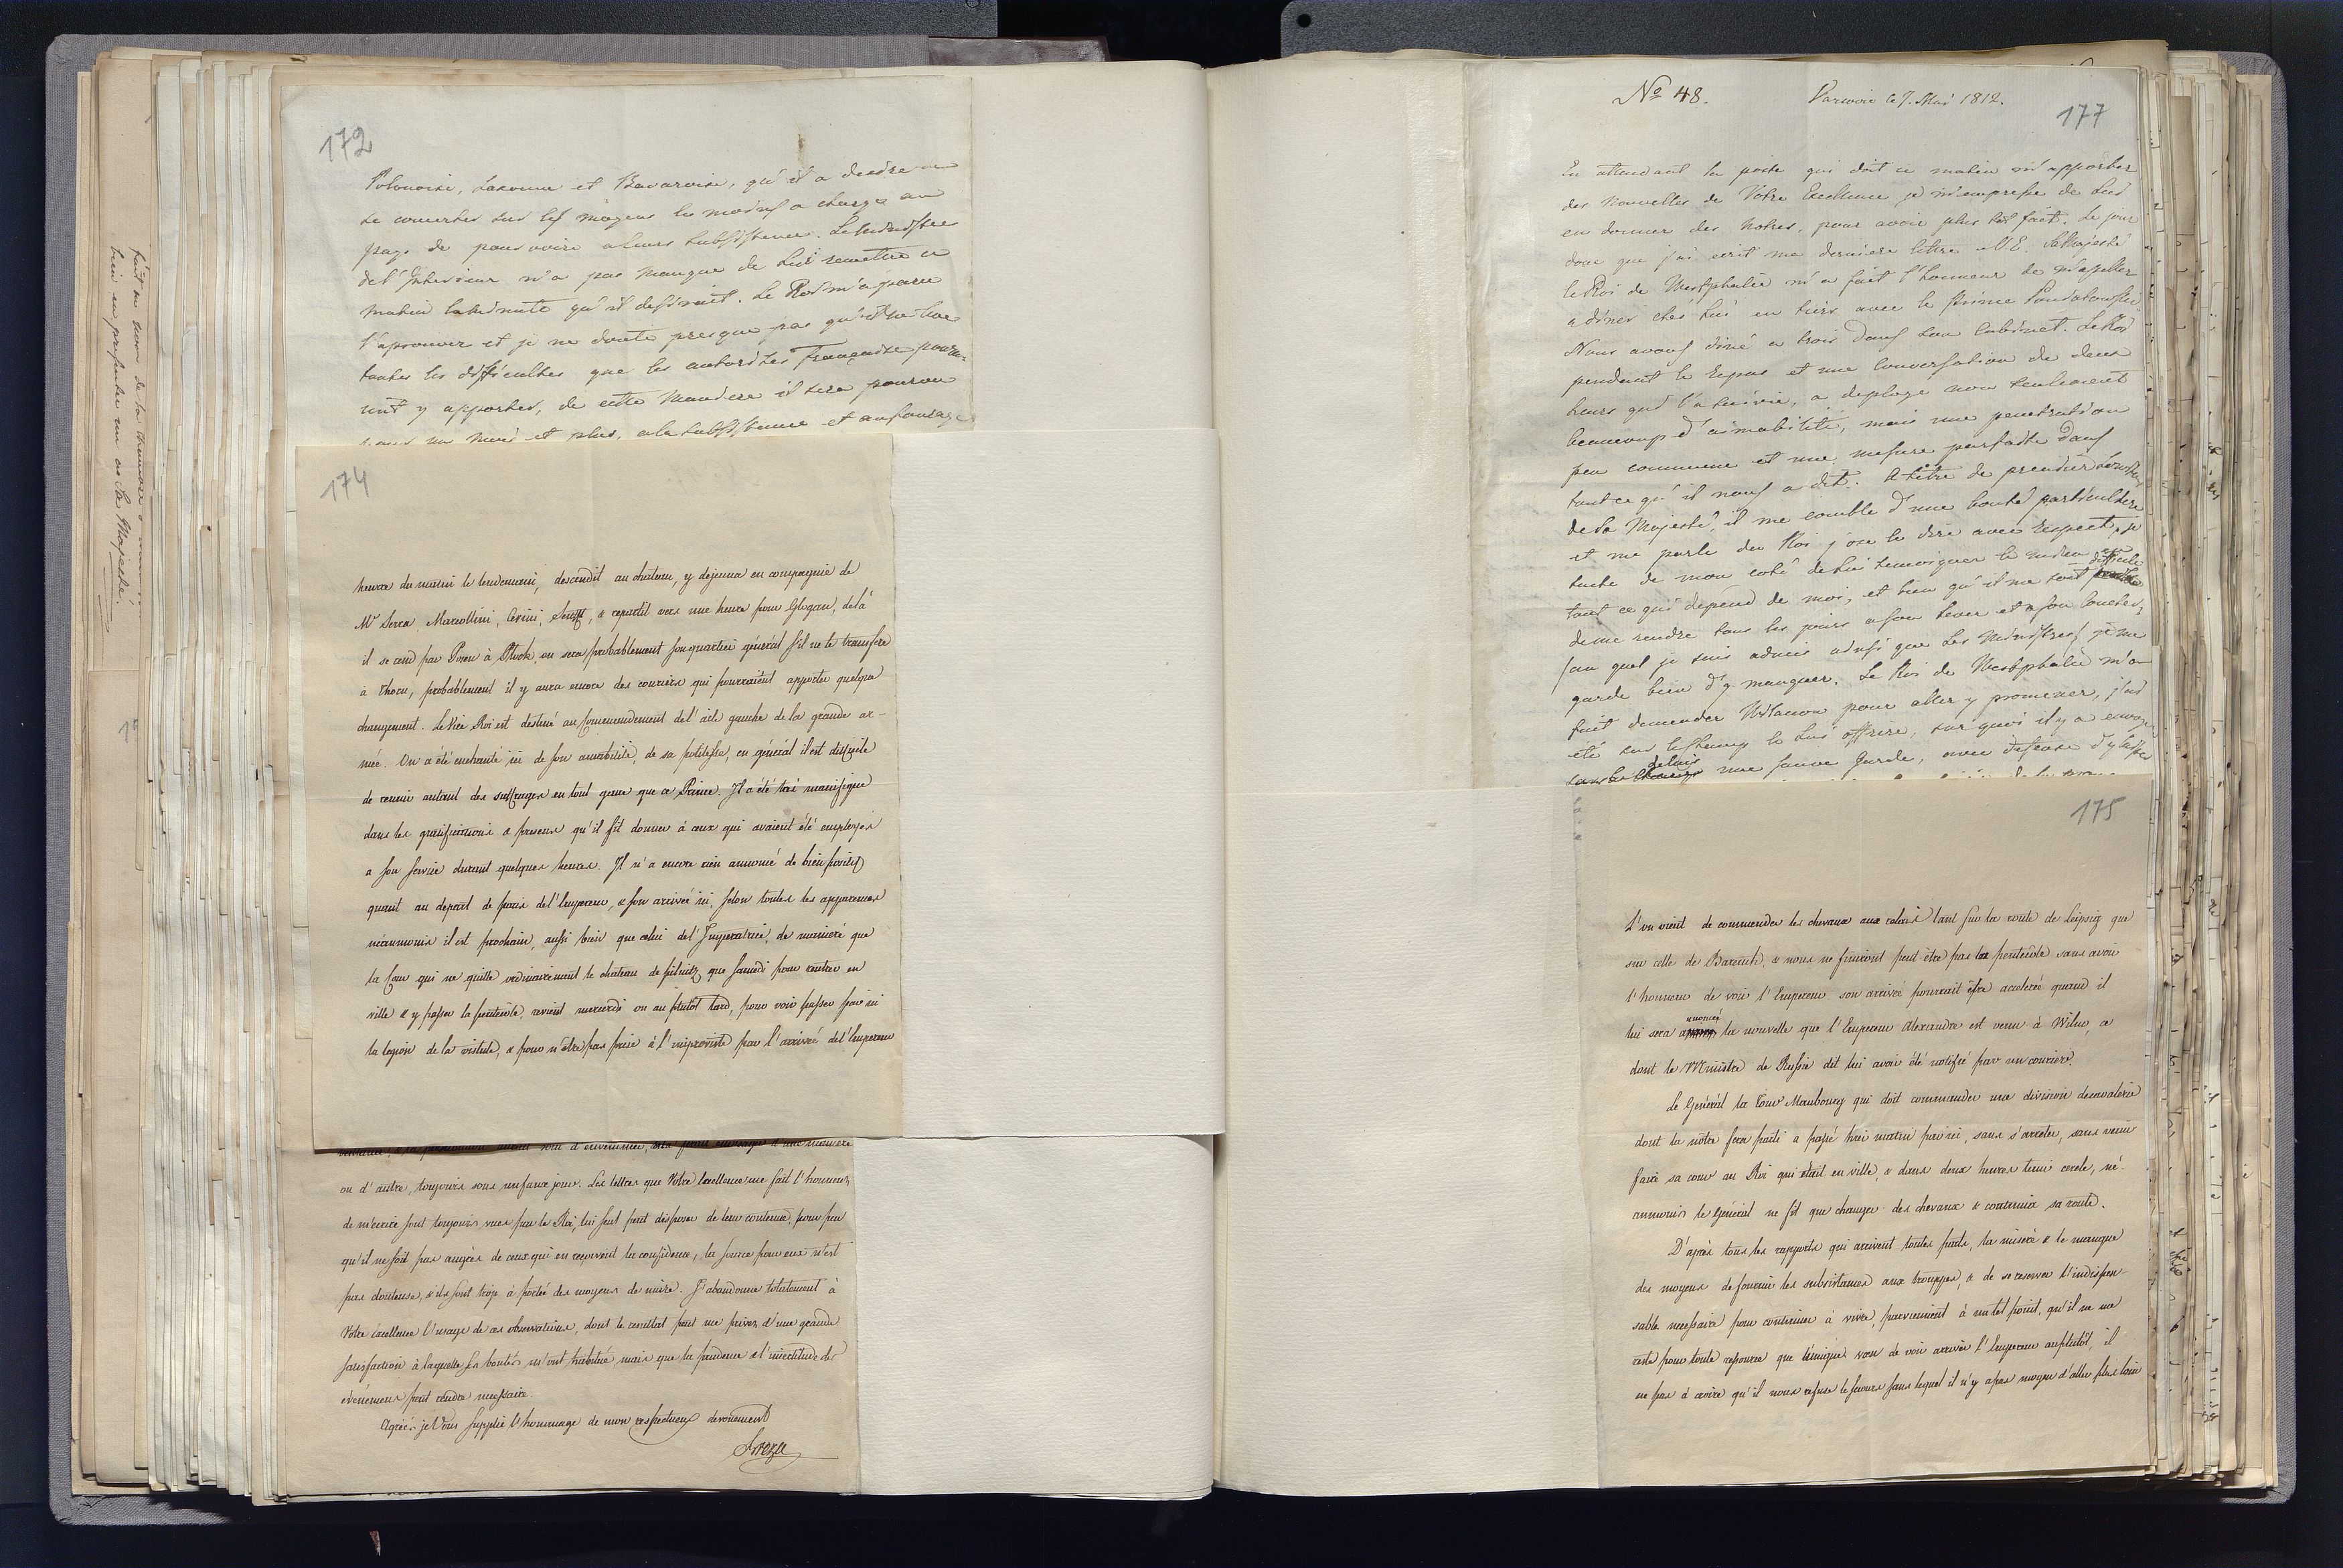 172
Polonoise, Saxonne et Bavaroise, qu'il a desire
se concerter sur les moyens les moins a charge au
pays de pourvoire a leurs subsistance. Le Ministre
de l'Interieur n'a pas manqué de Lui remettre ce
matin la minute qu'il desiroit. Le Roi m'a paru
l'aprouver et je ne doute presque pas qu'il ne leve
toutes les difficultes que les autorites Françaises pourra-
ient y apporter, de cette maniere il sera pourvu
un mois et plus, a la subsistance et au fourage
174
heures du matin le lendemain, descendit au chateau, y dejeuna en compagnie de
Mr Serra, Marcollini, Senfft, & repartit vers une heure pour Glogau, de là
il se rend par Posen à Plock, ou sera probablement son quartier général s'il ne le transfere
à Thorn, probablement il y aura encore des couriers qui pourraient apporter quelque
changement. Le Vice Roi est destiné au Commendement de l'aile gauche de la grande ar-
mée. On a été enchanté ici de son amabilité, de sa politesse, en général il est difficile
de reunir autant des suffrages en tout genre que ce Prince. Il a été très manifique
dans les gratifications & presens qu'il fit donner à ceux qui avaient été employés
a son service durant quelques heures. Il n'a encore rien annoncé de bien positif
quant au depart de Paris de l'Empereur, & son arrivée ici, selon toutes les apparences
néanmoins il est prochain, aussi bien que celui de l'Imperatrice, de manière que
la Cour qui ne quitte ordinairement le chateau de Pilnitz que samedi pour rentrer en
ville & y passer la pentecôte, revient mercredi ou au plutôt tard, pour voir passer par ici
la legion de la vistule, & pour n'être pas prise à l'improviste par l'arrivée de l'Empereur
ou d'autre, toujours sous un faux jour. Les lettres que Votre Excellence me fait l'honneur
de m'ecrire sont toujours vues par le Roi, lui seul peut disposer de leur contenu, pour peu
qu'il ne soit pas auprès de ceux qui en reçoivent la confidence, la source pour eux n'est
pas douteuse, & ils sont trop à portée des moyens de nuire. J'abandonne totalement à
Votre Excellence l'usage de ces observations, dont le resultat peut me priver d'une grande
satisfaction à laquelle Ses bontés m'ont habitué mais que la prudence & l'incertitude des
évenemens peut rendre necessaire.
Agréez je Vous supplie l'hommage de mon respectueux devouement
Breza
No 48. Varsovie le 7. Mai 1812.
177
En attendant la poste qui doit ce matin m'apporter
des nouvelles de Votre Excellence je m'empresse de Lui
en donner des notres, pour avoir plus tôt fait. Le jour
donc que j'ai ecrit ma derniere lettre a V.E. Sa Majesté
le Roi de Westphalie m'a fait l'honneur de m'apeller
a diner chés lui en tiers avec le Prince Poniatowski
Nous avons diné a trois dans son Cabinet. Le Roi
pendant le repas et une conversation de deux
heures qui l'a suivie, a deployé non seulement
beaucoup d'aimabilité, mais une penetration
peu commune et une mesure parfaite dans
tout ce qu'il nous a dit. A titre de premier Ministre
de Sa Majesté, il me comble d'une bonté particuliere
et me parle du Roi j'ose le dire avec respect, je
tache de mon coté de lui temoigner le mieux en
tout ce qui depend de moi, et bien qu'il me soit difficile
de me rendre tous les jours a son lever et a son coucher,
(au quel je suis admis ainsi que les Ministres) je me
garde bien d'y manquer. Le Roi de Westphalie m'a
fait demander Wilanow pour aller y promener, j'ai
été sur le champ le lui offrire, sur quoi il y a envoyé
delais une sauve garde, avec defense d'y laisser
175
L'on vient de commender les chevaux aux relais tant sur la route de Leipzig que
sur celle de Bareuth, & nous ne finiront peut être pas la pentecôte sans avoir
l'honneur de voir l'Empereur. son arrivée pourrait être accelerée quand il
lui sera annoncé la nouvelle que l'Empereur Alexandre est venu à Wilno, ce
dont le Ministre de Russie dit lui avoir été notifié par un courier.
Le Genéral la Tour Maubourg qui doit commander une division de cavalerie
dont la nôtre fera parti a passé hier matin par ici, sans s'arreter, sans venir
faire sa cour au Roi qui était en ville, & dans deux heures tenir cercle, né-
anmoins le général ne fit que changer des chevaux & continuer sa route.
D'après tous les rapports qui arrivent toutes parts, la misère & le manque
des moyens de fournir les subsistances aux trouppes, & de se reserver l'indispen-
sable necessaire pour continuer à vivre, parviennent à un tel point, qu'il ne me
reste pour toute reponse que l'unique vœu de voir arriver l'Empereur au plutôt, il
ne pas à croire qu'il nous refuse le secours sans lequel il n'y a pas moyen d'aller plus loin